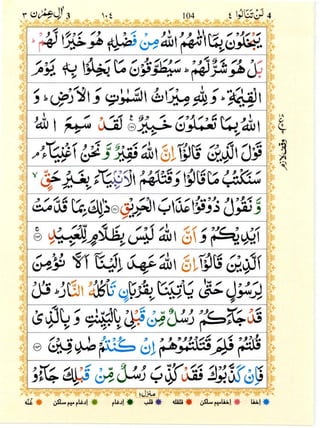 اٰل عمرٰن ٣ ١٠٤ 104 لن تنالوا ٤
یَبْخَلُوْنَ بِمَاۤ اٰتٰىهُمُ اللّٰهُ مِنْ فَضْلِهٖ هُوَ خَیْرًا لَّهُمْ ؕ
بَلْ هُوَ شَرٌّ لَّهُمْ ؕ سَیُطَوَّقُوْنَ مَا بَخِلُوْا بِهٖ یَوْمَ
الْقِیٰمَةِ ؕ وَ لِلّٰهِ مِیْرَاثُ السَّمٰوٰتِ وَ الْاَرْضِ ؕ وَ
اللّٰهُ بِمَا تَعْمَلُوْنَ خَبِیْرٌ لَقَدْ سَمِعَ اللّٰهُ
قَوْلَ الَّذِیْنَ قَالُوْۤا اِنَّ اللّٰهَ فَقِیْرٌ وَّ نَحْنُ اَغْنِیَآءُ ۘ
سَنَكْتُبُ مَا قَالُوْا وَ قَتْلَهُمُ الْاَنْۢبِیَآءَ بِغَیْرِ حَقٍّ ۙ
وَّ نَقُوْلُ ذُوْقُوْا عَذَابَ الْحَرِیْقِ ذٰلِكَ بِمَا قَدَّمَتْ
اَیْدِیْكُمْ وَ اَنَّ اللّٰهَ لَیْسَ بِظَلَّامٍ لِّلْعَبِیْدِ
اَلَّذِیْنَ قَالُوْۤا اِنَّ اللّٰهَ عَهِدَ اِلَیْنَاۤ اَلَّا نُؤْمِنَ
لِرَسُوْلٍ حَتّٰى یَاْتِیَنَا بِقُرْبَانٍ تَاْكُلُهُ النَّارُ ؕ قُلْ
قَدْ جَآءَكُمْ رُسُلٌ مِّنْ قَبْلِیْ بِالْبَیِّنٰتِ وَ بِالَّذِیْ
قُلْتُمْ فَلِمَ قَتَلْتُمُوْهُمْ اِنْ كُنْتُمْ صٰدِقِیْنَ
فَاِنْ كَذَّبُوْكَ فَقَدْ كُذِّبَ رُسُلٌ مِّنْ قَبْلِكَ جَآءُوْ
منزل ١
اخفا اخفا میم ساکن قلقله قلب ادغام ادغام میم ساکن غنّه